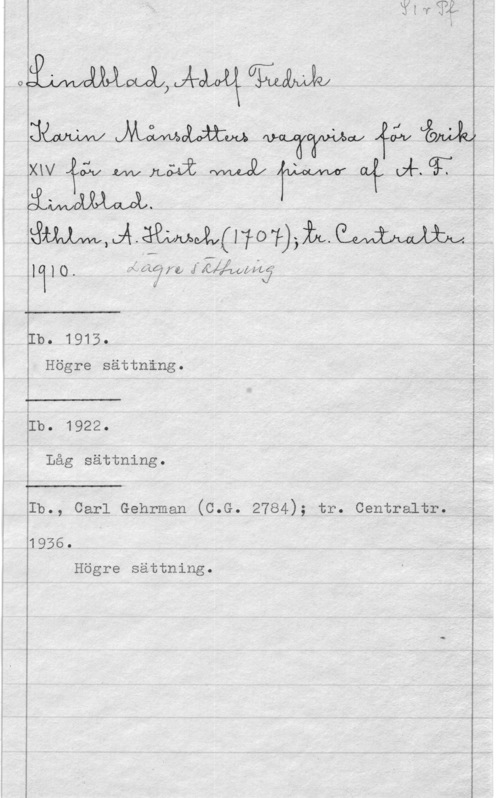 S 1 r Pf
Lindblad, Adolf Fredrik
Karin Månsdotters vaggvisa för Erik
XIV för en röst med piano af A. F.
Lindblad.
Sthlm, A. Hirsch (1707); tr. Centraltr.
1910. Lägre sättning
Ib. 1913.
Högre sättning.
Ib. 1922.
Låg sättning.
Ib., Carl Gehrman (C.G. 2784); tr. Centraltr.
1936.
Högre sättning.